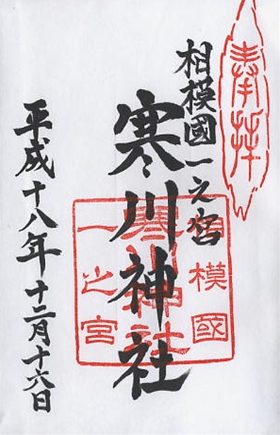 奉拝
相模國一之宮
寒川神社
平成十八年十二月十六日
相模國
寒川神社
一之宮